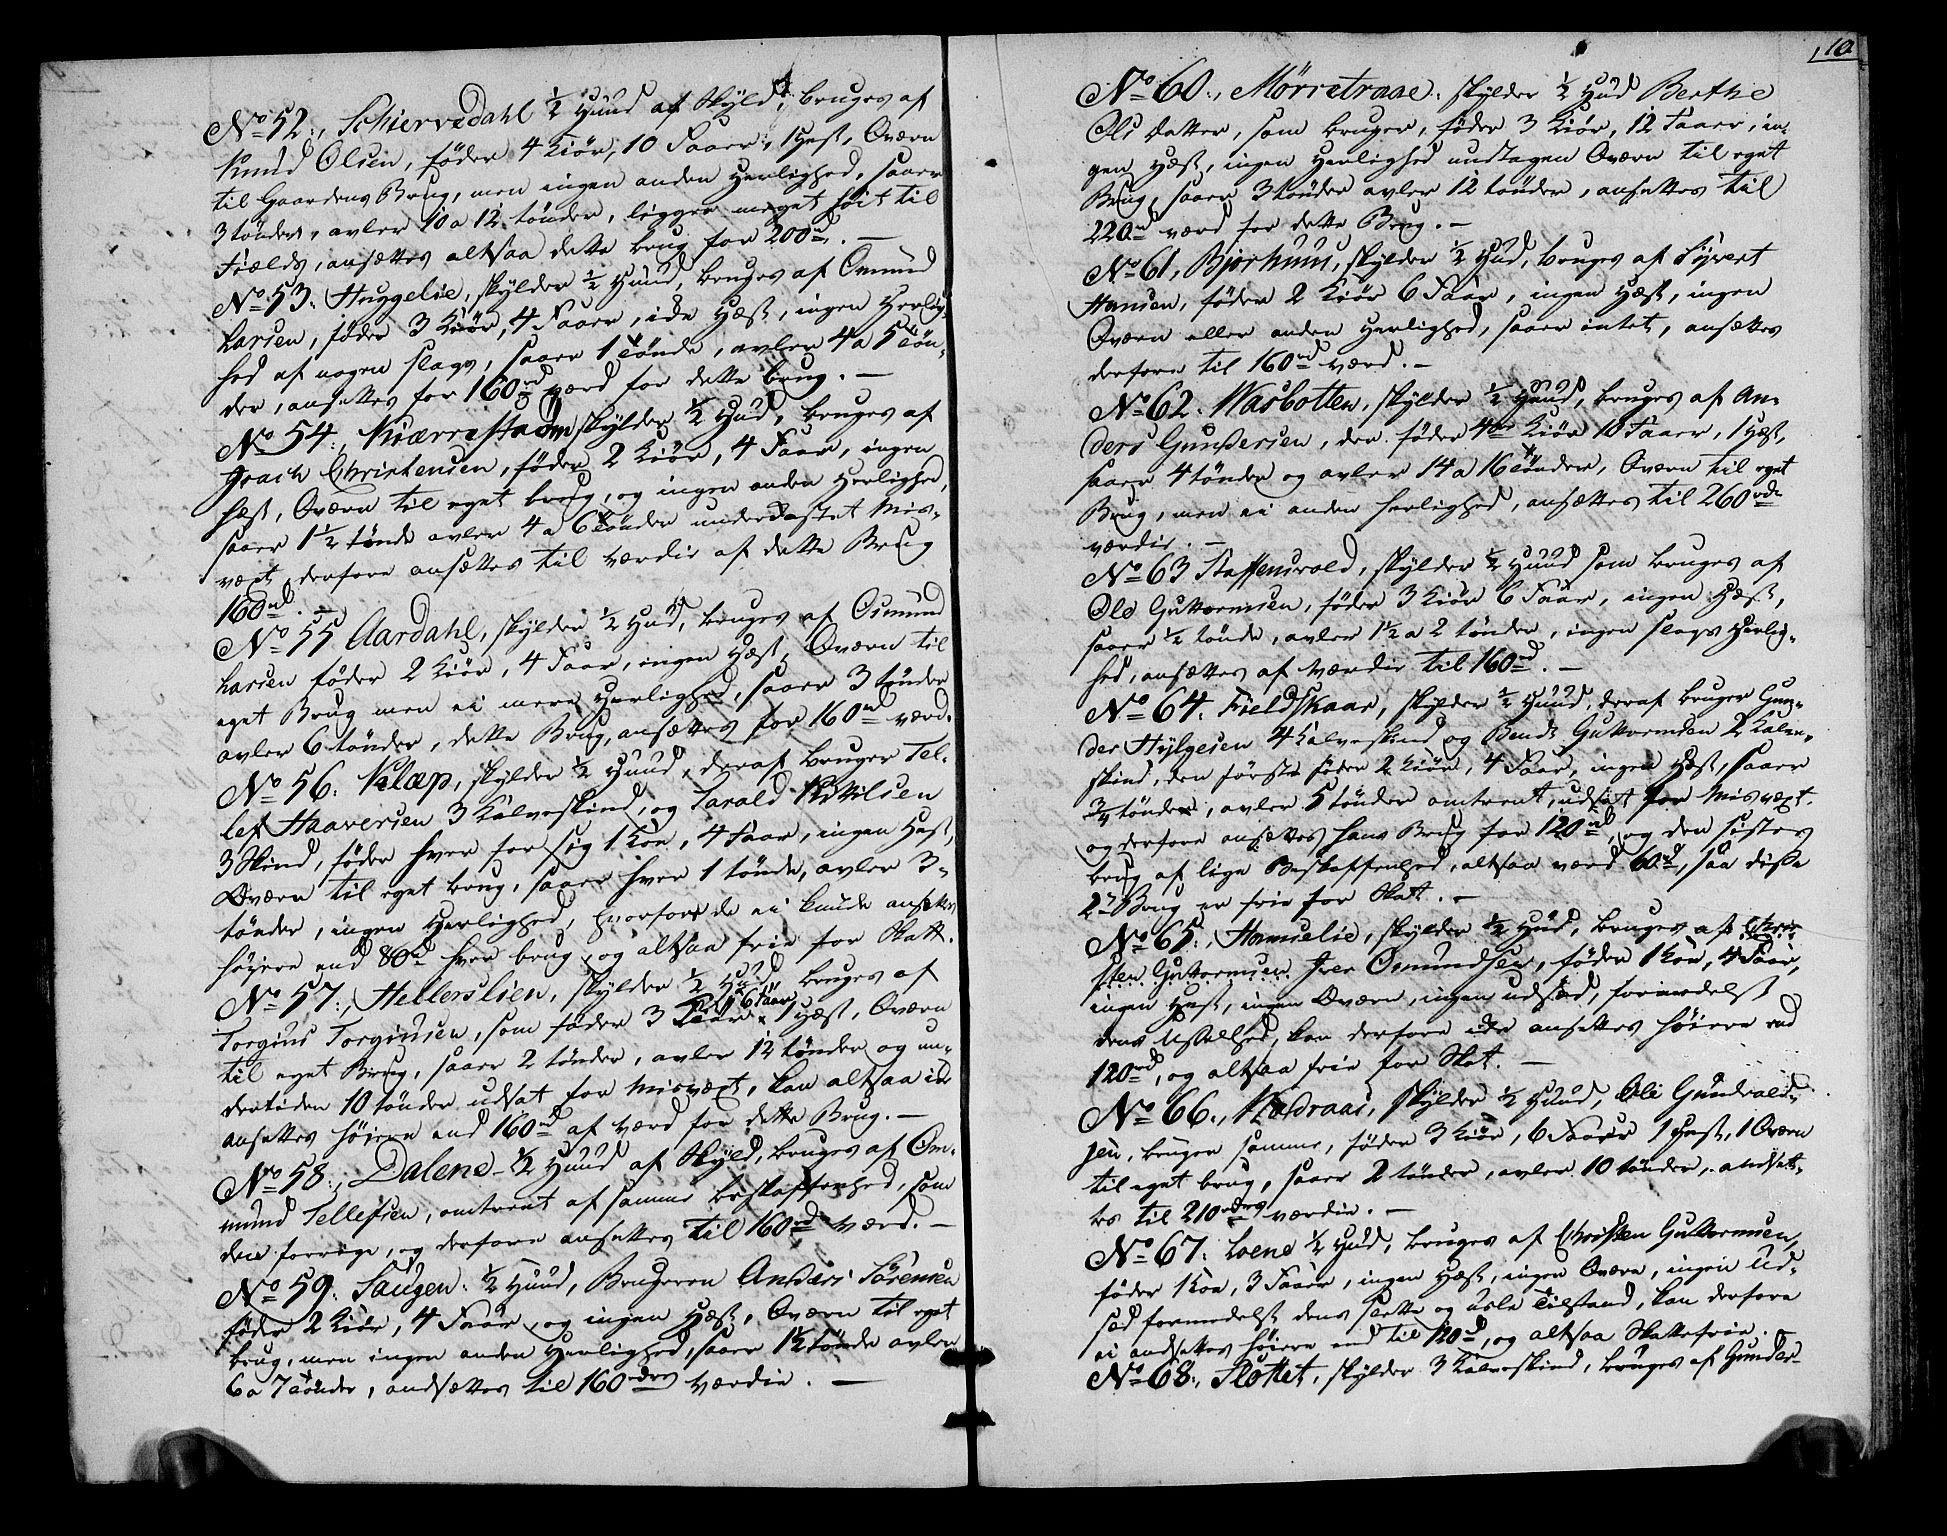 No 52., Schierredahl ½ Huud af Skyld, bruges af
Knud Olsen, föder 4 Kiör, 10 Faaer, 1 Hest, Qværn
til Gaardens Brug, men ingen anden Herlighed, saaer
3 tönder, avler 10 a 12 tönder, ligger meget höit til
Fields, ansættes altsaa dette brug for 200rd. —
No 53. Huggelie, skylder ½ Huud, bruges af Omund
Larsen, föder 3 Kiör, 4 Faaer, ide Hest, ingen Herlig-
hed af nogen slags, saaer 1 Tönde, avler 4 a 5 Tön-
der, ansettes for 160rd værd for dette brug. —
No 54., Kiærrestadm skylder ½ Hud, bruges af
Joach Christensen, föder 2 Kiör, 4 Faar, ingen
Hest, Qværn til eget brug, og ingen anden Herlighed,
saaer 1½ tönde avler 4 a 6 Tönder underkastet Mis-
vext, derfore ansættes til Værdie af dette Brug
160rd. —
No 55 Aardahl, skylder ½ Hud, bruges af Osmund
Larsen föder 2 Kiör, 4 Faar, ingen Hest, Qværn til
eget Brug men ei mere Herlighed, saaer 3 tönder
avler 6 tönder, dette Brug, ansættes for 160rd værd.
No 56. Klæp, skylder ½ Huud, deraf bruger Tel-
lef Haaversen 3 Kalveskind, og Tarald Kittilsen
3 Skind, föder hver for sig 1 Koe, 4 Faar, ingen Hest,
Qværn til eget brug, saaer hver 1 tönde, avler 3-
tönder, ingen Herlighed, hvorfore de ei kunde ansettes
höyere end 80rd hver brug og altsaa frie for Skatt.
No 57., Hellerslien, skylder ½ Hud bruges af
Torgius Torgiusen, som föder 3 Kiör 6 Faar 1 Hest, Qværn
til eget Brug, saaer 2 tönder, avler 12 tönder og un-
dertiden 10 tönder udsat for Misvext, kan altsaa ide
ansettes höiere end 160rd af værd for dette Brug. —
No 58., Dalene ½ Huud af Skyld, bruges af Om-
mund Tellefsen, omtrent af samme beskaffenhed, som
den forrige, og derfore ansættes til 160rd værd. —
No 59. Saugen. ½ Huud, Brugeren Anders Sörensen
föder 2 Kiör, 4 Faar, og ingen Hest, Qværn til eget
brug, men ingen anden Herlighed, saaer 1½ tönde avler
6 a 7 Tönder, andsættes til 160rdrs Værdie. —
10
No 60., Mörretraae. skylder ½ Hud Berthe
Ols datter, som bruger, föder 3 Kiör, 12 Faaer, in-
gen Hest, ingen Herlighed undtagen Qværn til eget
Brug, saaer 3 tönder avler 12 tönder, ansettes til
220rd værd for dette Brug. —
No 61, Bjorhuus, skylder ½ Hud, bruges af Syvert
Hansen, föder 2 Kiör 6 Faar, ingen Hest, ingen
Qværn eller anden Herlighed, saaer intet, ansættes
derfore til 160rd værd. —
No 62. Wasbotten, skylder ½ Huud, bruges af An-
ders Gundersen, der föder 4re Kiör 10 Faaer, 1 Hest,
saaer 4 tönder og avler 14 a 16 Tönder, Qværn til eget
Brug, men ei anden herlighed, ansættes til 260rd
værdie. —
No 63 Staffensvold, skylder ½ Huud som bruges af
Ole Guttormsen, föder 3 Kiör 6 Faar, ingen Hest,
saaer ½ tönde, avler 1½ a 2 tönder, ingen slags Herlig-
hed, ansættes af Værdie til 160rd. —
No 64. Fieldskaar, skylder ½ Huud, deraf bruger Gun-
der Hylgesen 4 Kalveskind og Bendt Guttormsen 2 Kalve-
skind, den förste föder 2 Kiör, 4 Faar, ingen Hest, saaer
¾ tönder, avler 5 tönder omtrent, udsat for Misvext.
og derfore ansættes hans Brug for 120rd, og den sistes
brug af lige Beskaffenhed, altsaa værd 60rd, saa disse
2de Brug er frie for Skat. —
No 65., Homelie, skylder ½ Hud, bruges af Chri-
sten Guttormsen Iver Osmundsen, föder 1 Koe, 4 Faar,
ingen Hest, ingen Qværn, ingen udsæd, formedelst
dens Usselhed, kan derfore ide ansettes höiere end
120rd, og altsaa frie for Skat. —
No 66., Kodraas, skylder ½ Huud, Ole Gundvald-
sen, bruger samme, föder 3 Kiör, 6 Faaer 1 Hest, 1 Qværn
til eget brug, saaer 2 tönder, avler 10 tönder, andset-
tes til 210rdrs værdie. —
No 67. Loene ½ Hud, bruges af Christen Guttormsen,
föder 1 Koe, 3 Faaer, ingen Hest, ingen Qværn, ingen Ud-
sæd formedelst dens slette og usle Tilstand, kan derfore
ei andsettes höiere end til 120rd, og altsaa Skattefrie. —
No 68., Slottet, skylder 3 Kalveskind, bruges af Gunder-